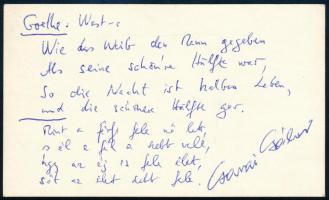 Goethe: West-ö
Wie das Weib dem Mann gegeben
Als seine schönre Hälfte war,
So die Nacht ist halben Leben,
und die schönere Hälfte gar.
Mint a férfi fele nő lett,
s él a fél a szebb
úgy az éj is fele élet,
sőt az élet szebb fele.